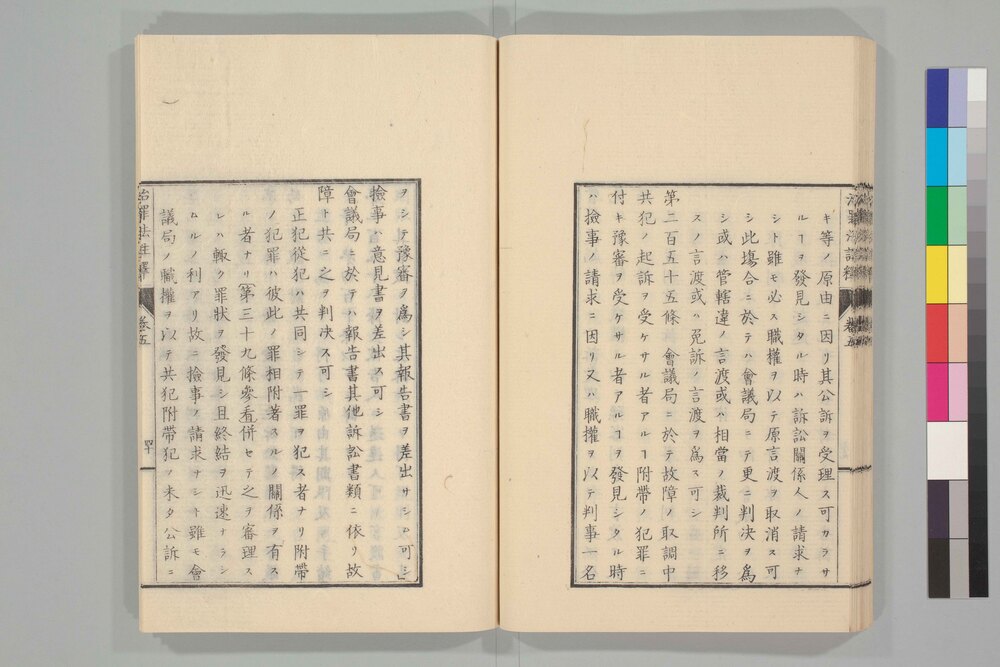 キ等ノ原由ニ因リ其公訴ヲ受理ス可カラサ
ルヿヲ發見シタル時ハ訴訟關係人ノ請求ナ
シト雖モ必ス職權ヲ以テ原言渡ヲ取消ス可
シ此塲合ニ於テハ會議局ニテ更ニ判决ヲ爲
シ或ハ管轄違ノ言渡或ハ相當ノ裁判所ニ移
スノ言渡或ハ免訴ノ言渡ヲ爲ス可シ
第二百五十五條 會議局ニ於テ故障ノ取調中
共犯ノ起訴ヲ受ケサル者アルヿ附帶ノ犯罪ニ
付キ豫審ヲ受ケサル者アルヿヲ發見シタル時
ハ撿事ノ請求ニ因リ又ハ職權ヲ以テ判事一名
ヲシテ豫審ヲ爲シ其報告書ヲ差出サシム可シ
撿事ハ意見書ヲ差出ス可シ
會議局ニ於テハ報告書其他訴訟書類ニ依リ故
障ト共ニ之ヲ判决ス可シ
正犯從犯ハ共同シテ一罪ヲ犯ス者ナリ附帶
ノ犯罪ハ彼此ノ罪相附著スルノ關係ヲ有ス
ル者ナリ(第三十九條參看)併セテ之ヲ審理ス
レハ輙ク罪狀ヲ發見シ且終結ヲ迅速ナラシ
ムルノ利アリ故ニ撿事ノ請求ナシト雖モ會
議局ノ職權ヲ以テ共犯附帶犯ヲ未タ公訴ニ
治罪法註釋 卷五